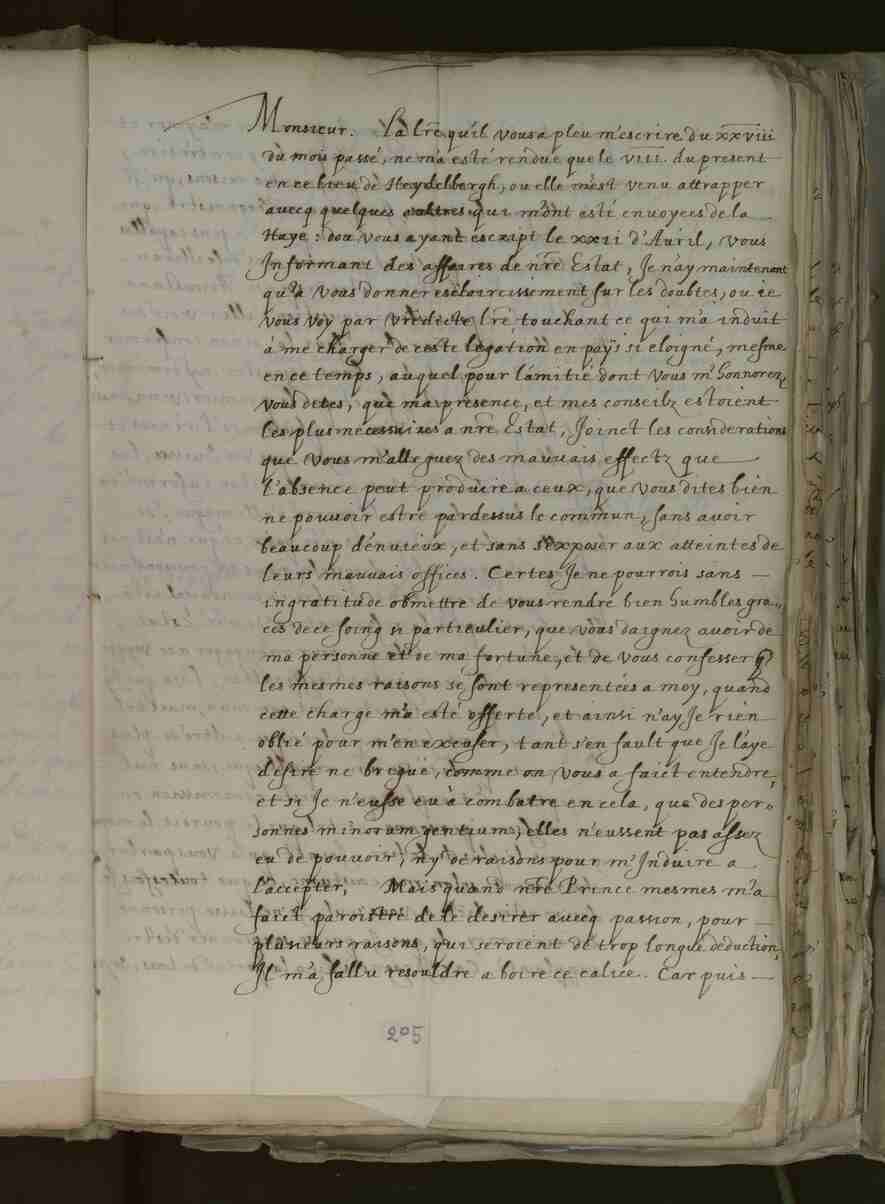 Monsieur. La lre qu'il vous a pleu m'escrire du xxviii
du mois passé, ne m'a esté rendue que le viii. du present
en ce lieu de Heydelbergh, ou elle m'est venu attrapper
avecq quelques aultres qui m'ont esté envoyees de la
Haye: dou vous ayant escript le xxii d'Avril, vous
Informant des affaires de nre Estat, Je n'ay maintenant
qu'à vous donner esclaircissement sur les doubtes, ou ie
vous voy par vredicte lre, touchant ce qui m'a induit
à me charger de ceste legation en païs si eloigné, mesme
en ce temps, auquel pour l'amitié dont vous m'honnorez,
vous dites, que ma presence, et mes conseilz estoient
les plus necessaires a nre Estat, Joinct les considerations
que vous m'alleguez des mauvais effectz que
l'absence peut produire a ceux, que vous dites bien
ne pouvoir estre pardessus le commun, sans avoir
beaucoup d'envieux, et sans s'exposer aux atteintes de
leurs mauvais offices. Certes Je ne pourrois sans
ingratitude obmettre de vous rendre bien humbles gra„
ces de ce soing si particulier, que vous daignez avoir de
ma personne et de ma fortune, et de vous confesser q
les mesmes raisons se sont representées a moy, quand
cette charge m'a esté offerte, et ainsi n'ay Je rien
oblié pour m'en excuser, tant s'en fault que Je l'aye
desiré ne brigué, comme on vous a faict entendre,
et si Je n'eusse eu à combatre en cela, que des per„
sonnes minorum gentium, elles n'eussent pas assez
eu de pouvoir, n'y de raisons pour m'Induire a
l'accepter, Mais quand nre Prince mesmes m'a
faict paroistre de le desirer avecq passion, pour
plusieurs raisons, qui seroient de trop longue deduction,
Il m'a fallu resouldre a boire ce calice. Car puis
205